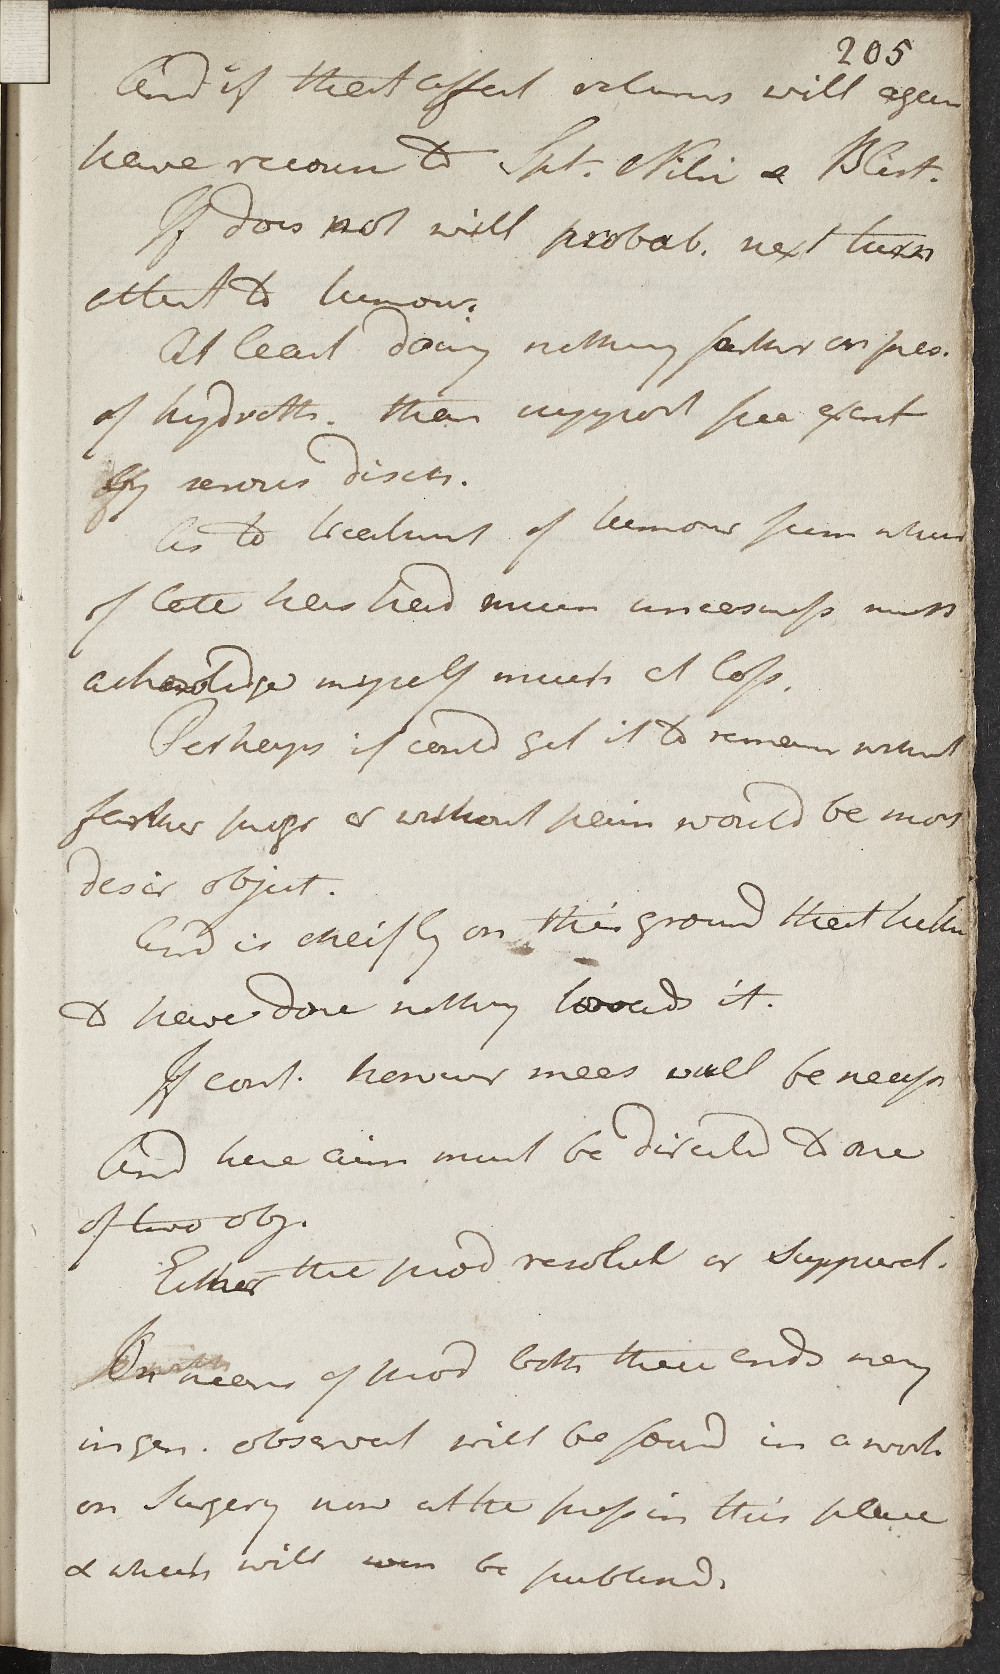 205
And if that affect returns will again
have recours to Spt. Nitri & Blist.
If does not will probab. next turn
attent to tumour.
At least doing nothing farther on
of hydroth. then support free exart
By venous disch.
As to treatment of tumour from which
of late has had much uneasiness must
acknowledge myself much at loss.
Perhaps if could get it to remain without
farther progr or without pain would be most
desir object.
And is cheifly on this ground that hither
to have done nothing towards it.
If cont. however meas will be necessy
And here aim must be directed to one
of two obj.
Either the prod resolut or suppurat.
On means of prod both these ends many
ingen. observat will be found in a work
on Surgery now at the press in this place
& which will be publishd.